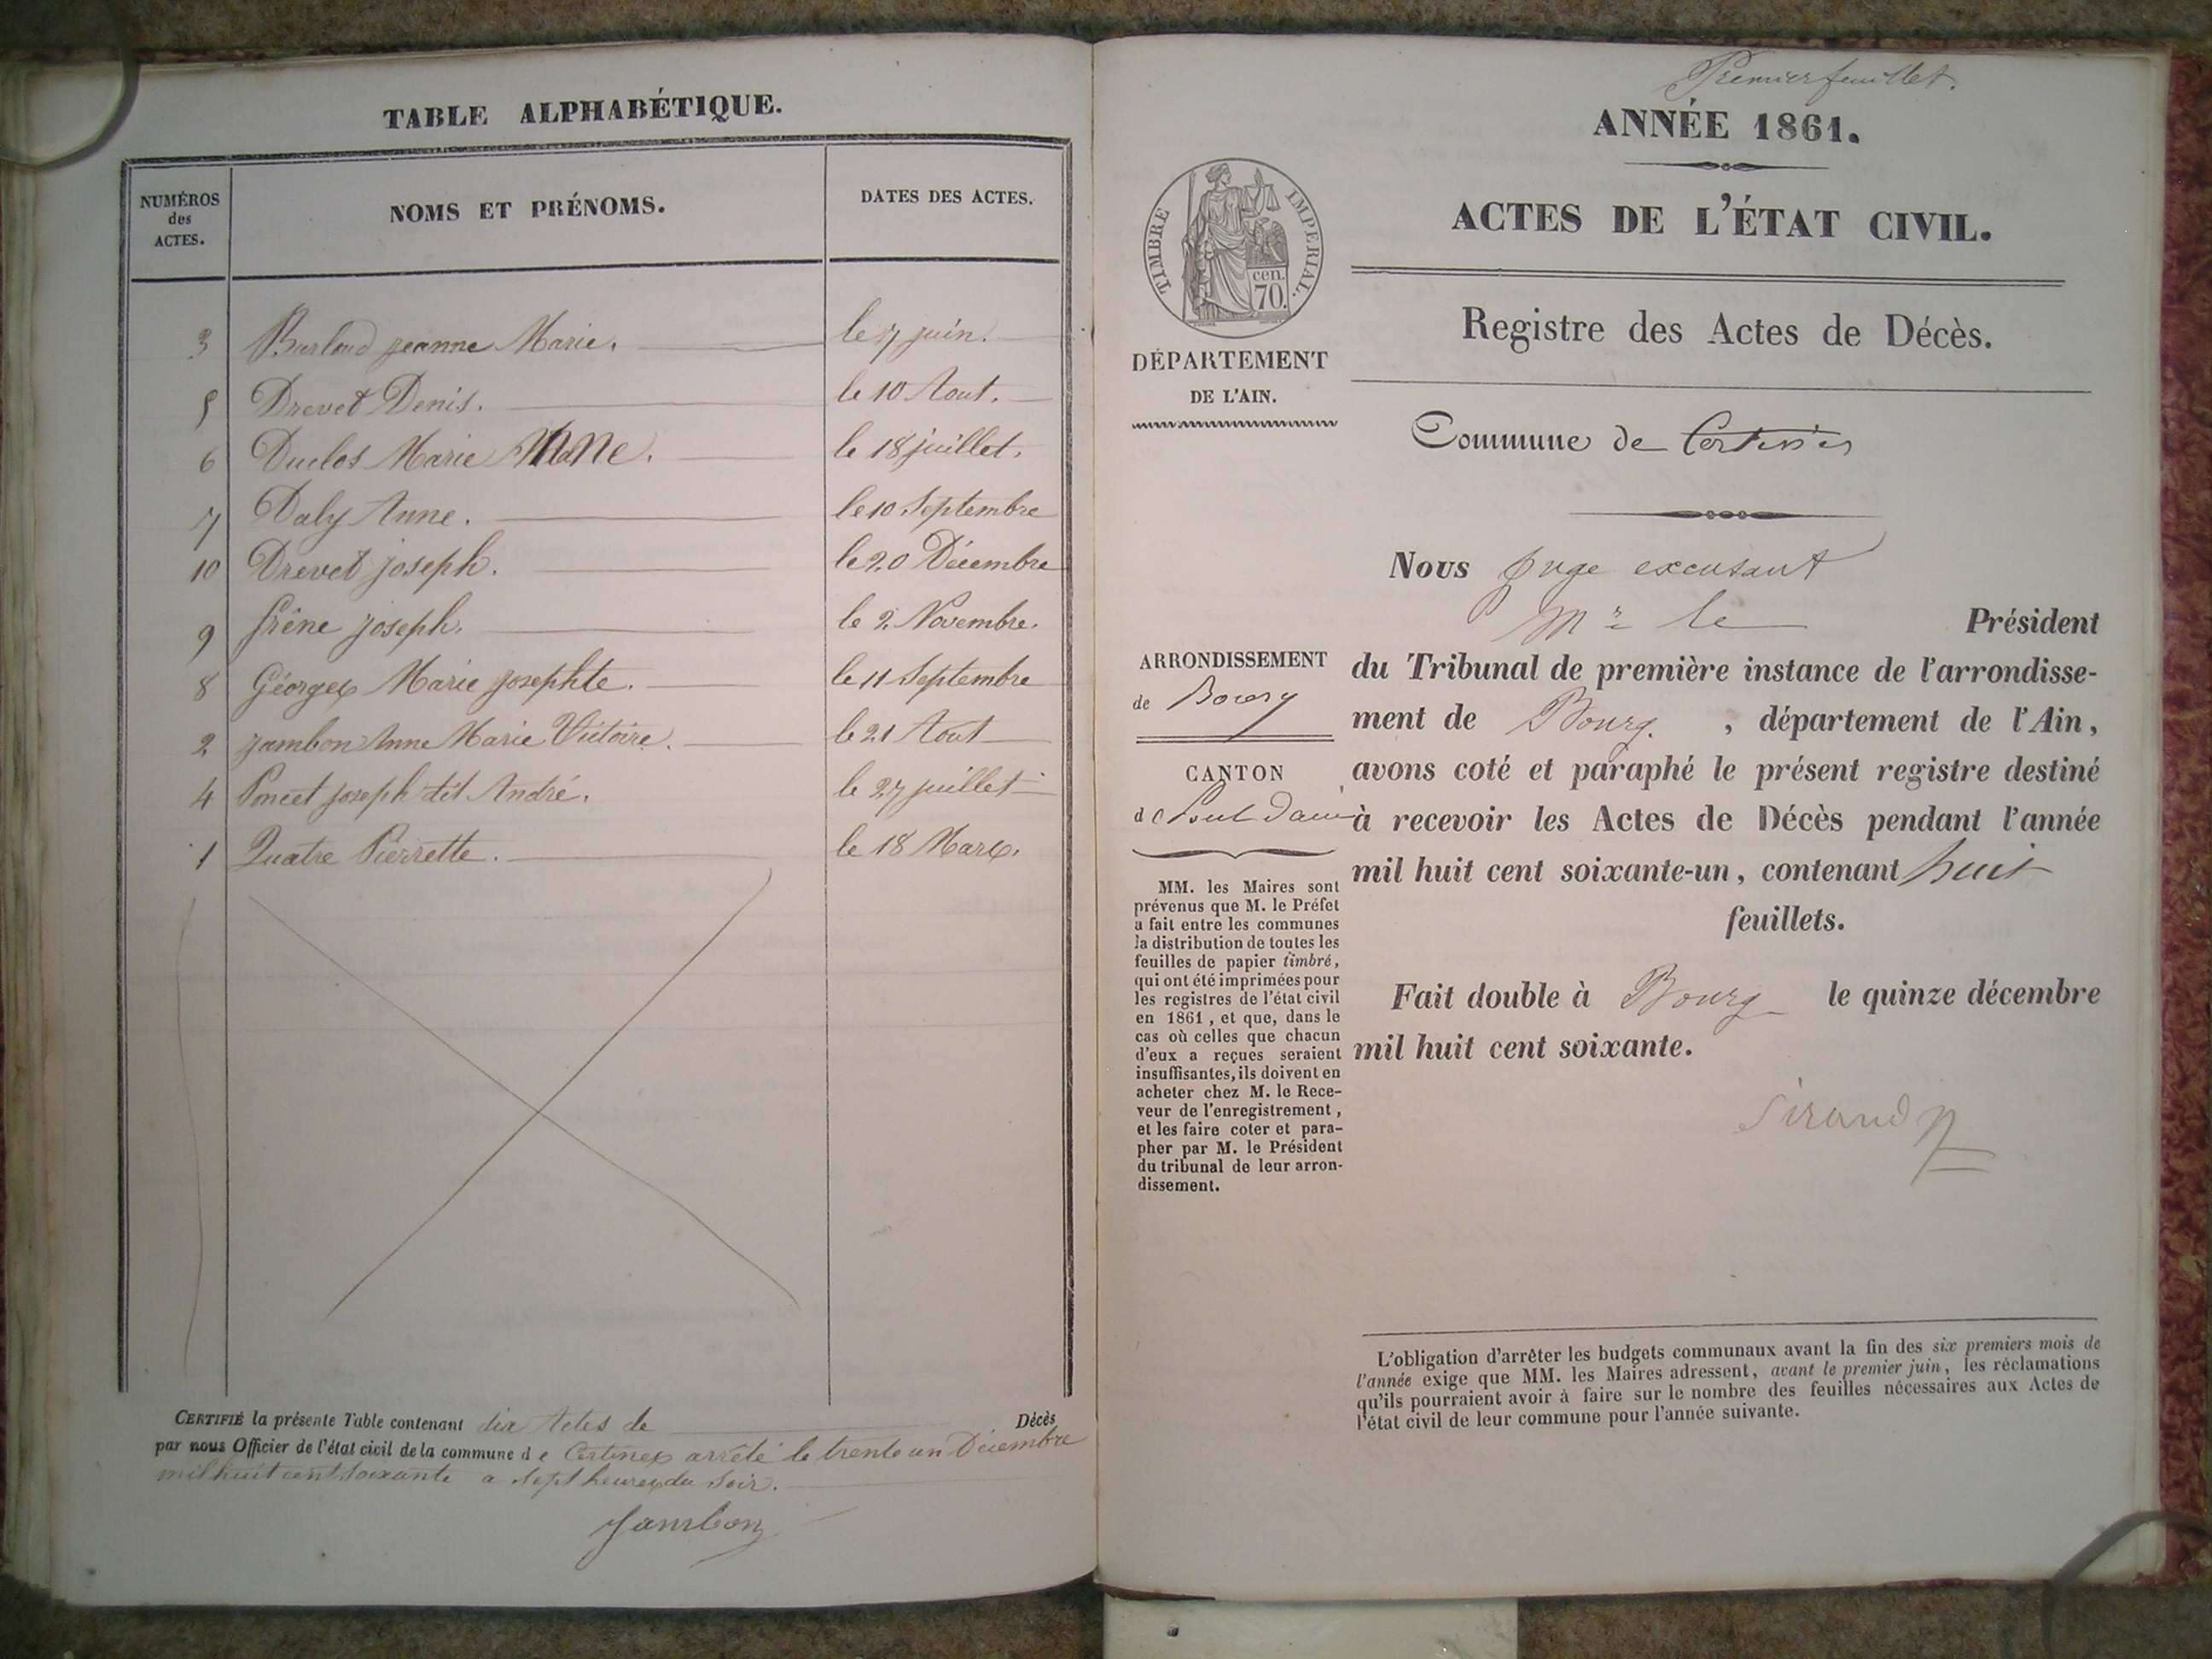 TABLE ALPHABÉTIQUE.
NUMÉROS des ACTES. NOMS ET PRÉNOMS. DATES DES ACTES.
3 Burlaud jeanne Marie. le 7 juin.
5 Drevet Denis. le 10 Aout.
6 Duclos Marie le 18 juillet.
7 Daly Anne. le 10 Septembre
10 Drevet joseph. le 20 Décembre
9 frêne joseph. le 2 Novembre.
8 Géorgex Marie josephte. le 11 Septembre
2 jambon Anne Marie Victoire. le 21 Aout
4 Poncet joseph dit André. le 27 juillet
1 Quatre Pierrette. le 18 Marx.
CERTIFIÉ la présente Table contenant dix Actes de Décès
par nous Officier de l'état civil de la commune de Certinex arrêté le trente un Décembre
mil huit cent soixante a sept heurex du Soir.
Jambon
Premier feuillet.
ANNÉE 1861.
ACTES DE L'ÉTAT CIVIL.
TIMBRE IMPERIAL.
cen.
70.
Registre des Actes de Décès.
DÉPARTEMENT
DE L'AIN.
Commune de Certines
Nous juge excusant
Mr le Président
ARRONDISSEMENT
de Bourg
du Tribunal de première instance de l'arrondisse-
ment de Bourg. , département de l'Ain,
CANTON
de Pont Dain
avons coté et paraphé le présent registre destiné
à recevoir les Actes de Décès pendant l'année
mil huit cent soixante-un, contenant huit
feuillets.
MM. les Maires sont
prévenus que M. le Préfet
a fait entre les communes
la distribution de toutes les
feuilles de papier timbré,
qui ont été imprimées pour
les registres de l'état civil
en 1861, et que, dans le
cas où celles que chacun
d'eux a reçues seraient
insuffisantes, ils doivent en
acheter chez M. le Rece-
veur de l'enregistrement,
et les faire coter et para-
pher par M. le Président
du tribunal de leur arron-
dissement.
Fait double à Bourg le quinze décembre
mil huit cent soixante.
Sirand
L'obligation d'arrêter les budgets communaux avant la fin des six premiers mois de
l'année exige que MM. les Maires adressent, avant le premier juin, les réclamations
qu'ils pourraient avoir à faire sur le nombre des feuilles nécessaires aux Actes de
l'état civil de leur commune pour l'année suivante.